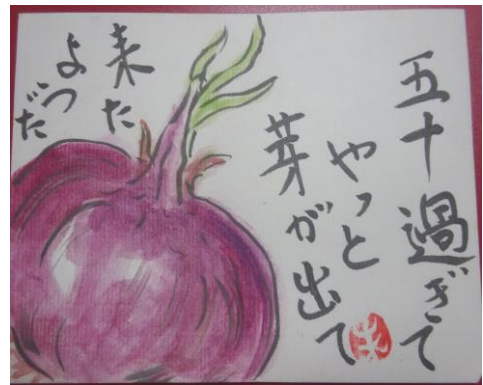 五十過ぎて
やっと
芽が出て
来た
ようだ